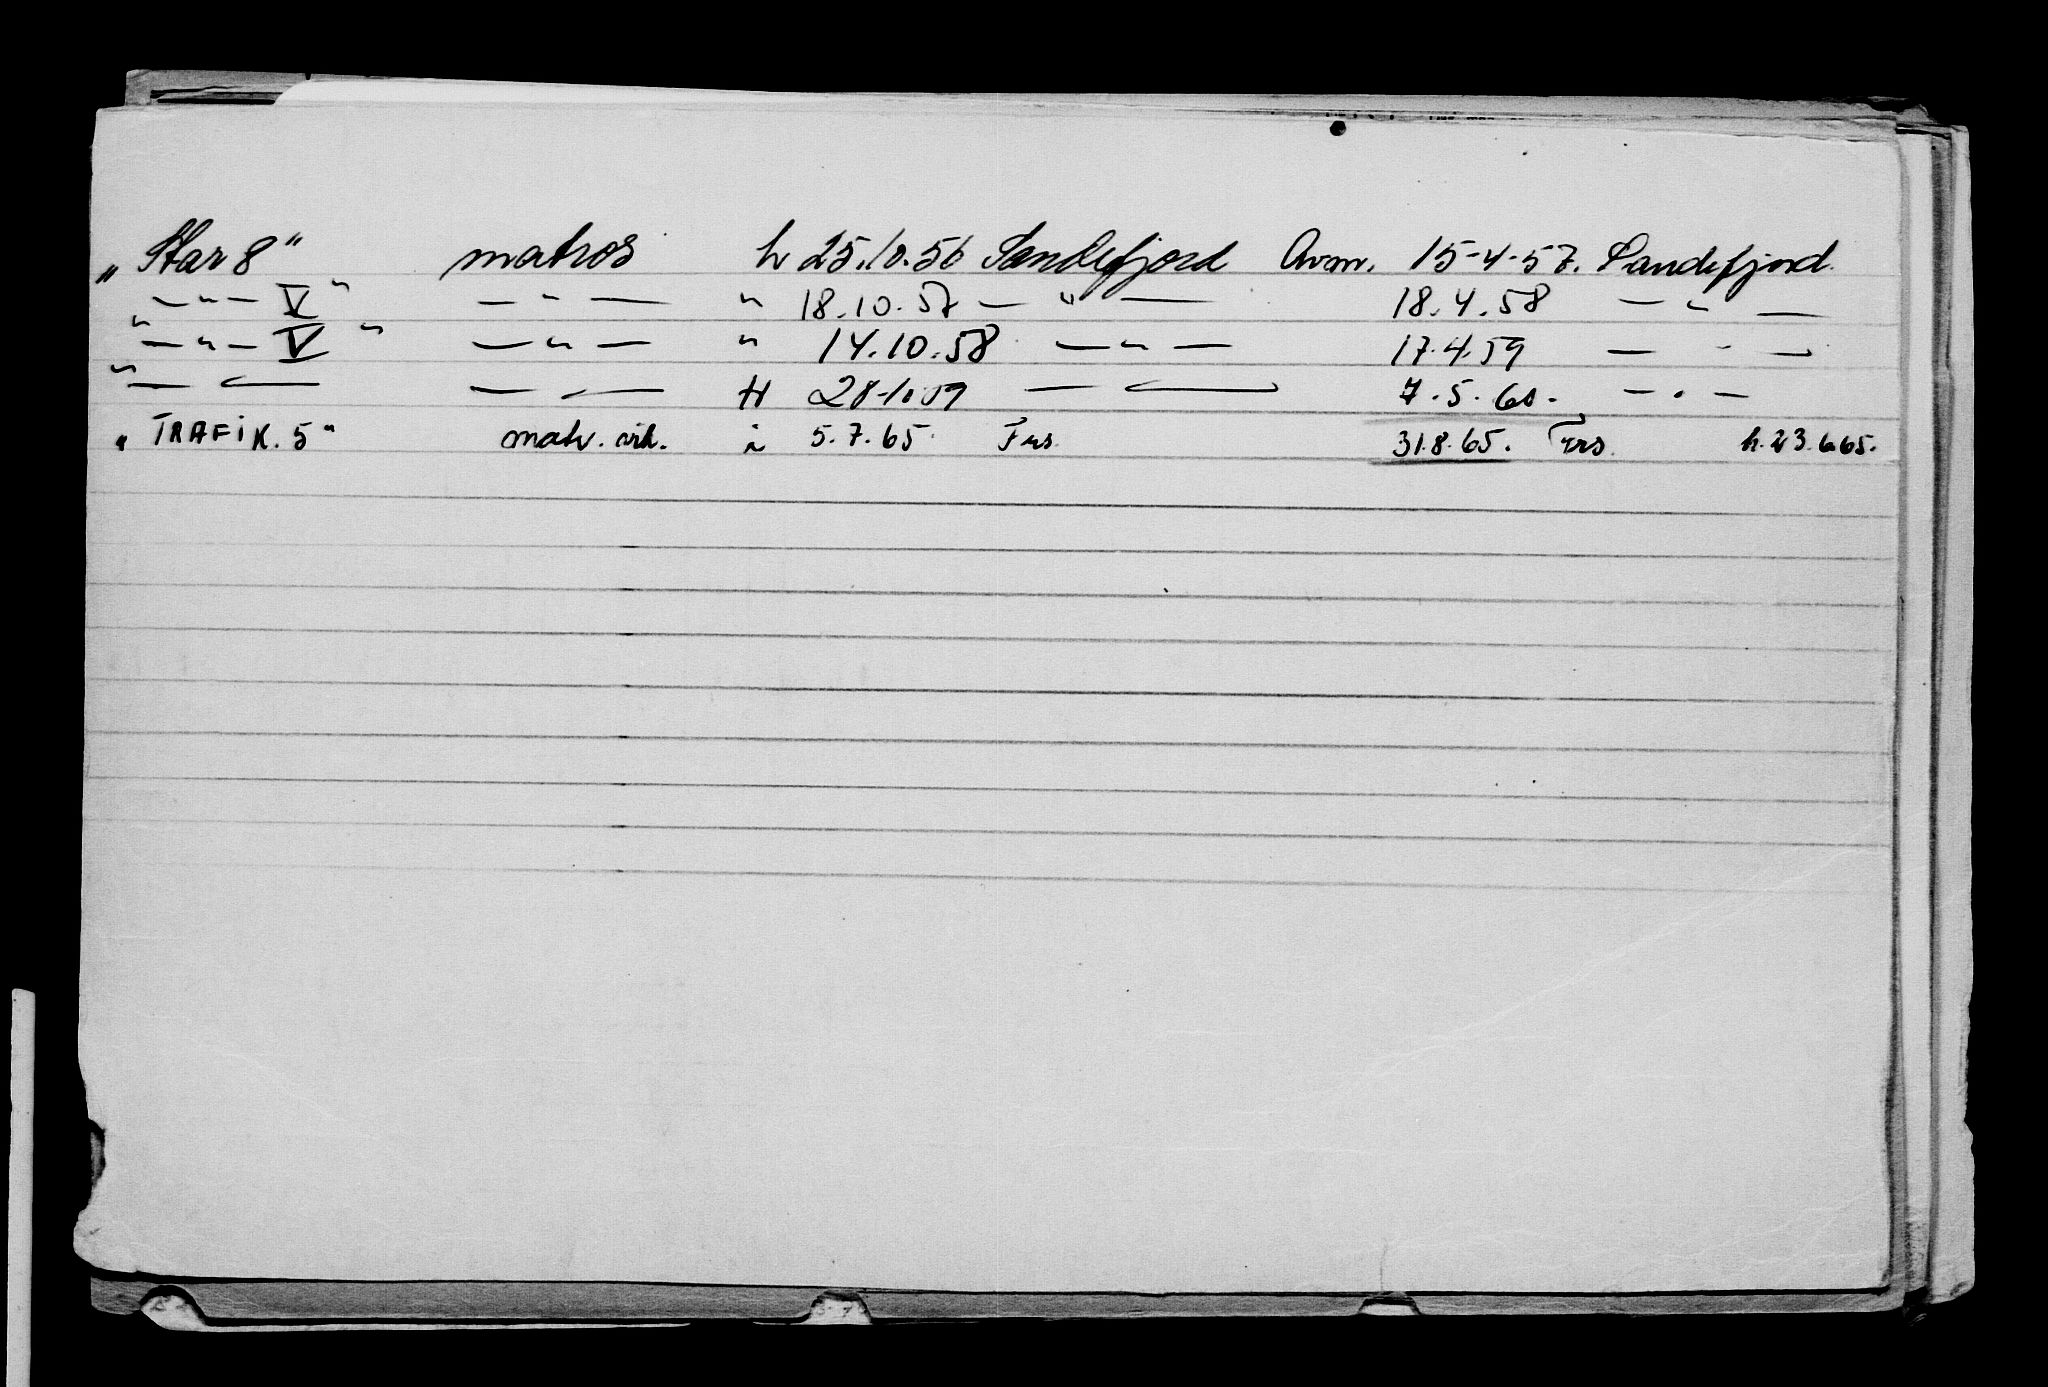 „Star 8“ matros h 25.10.56 Sandefjord Avm. 15-4-57. Sandefjord.
— " — V " — " — " 18.10.57 — " — 18.4.58 — " —
" — " — V " — " — " 14.10.58 — " — 17.4.59 — " —
" — " — — " — H 28-10.59 — " — 7.5.60. — " —
„TRAFIK. 5“ matr. vik. i 5.7.65 Frs 31.8.65. Frs h. 23.6.65.